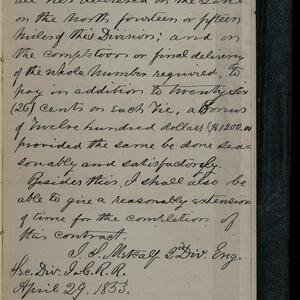 all ties delivered on the Line
on the North fourteen or fifteen
miles of this Division; and on
the completion or final delivery
of the whole number required, to
pay in addition to twenty Six
(26) cents on Each Tie, a Bonus
of Twelve hundred dollars ($1200.00
provided the same be done sea-
sonably and satisfactorily.
Besides this, I shall also be
able to give a reasonably extension
of time for the completion of
this contract.
J. S. Metcalf 2 Div. Eng.
Sec. Div. I. C. R. R.
April 29, 1853.